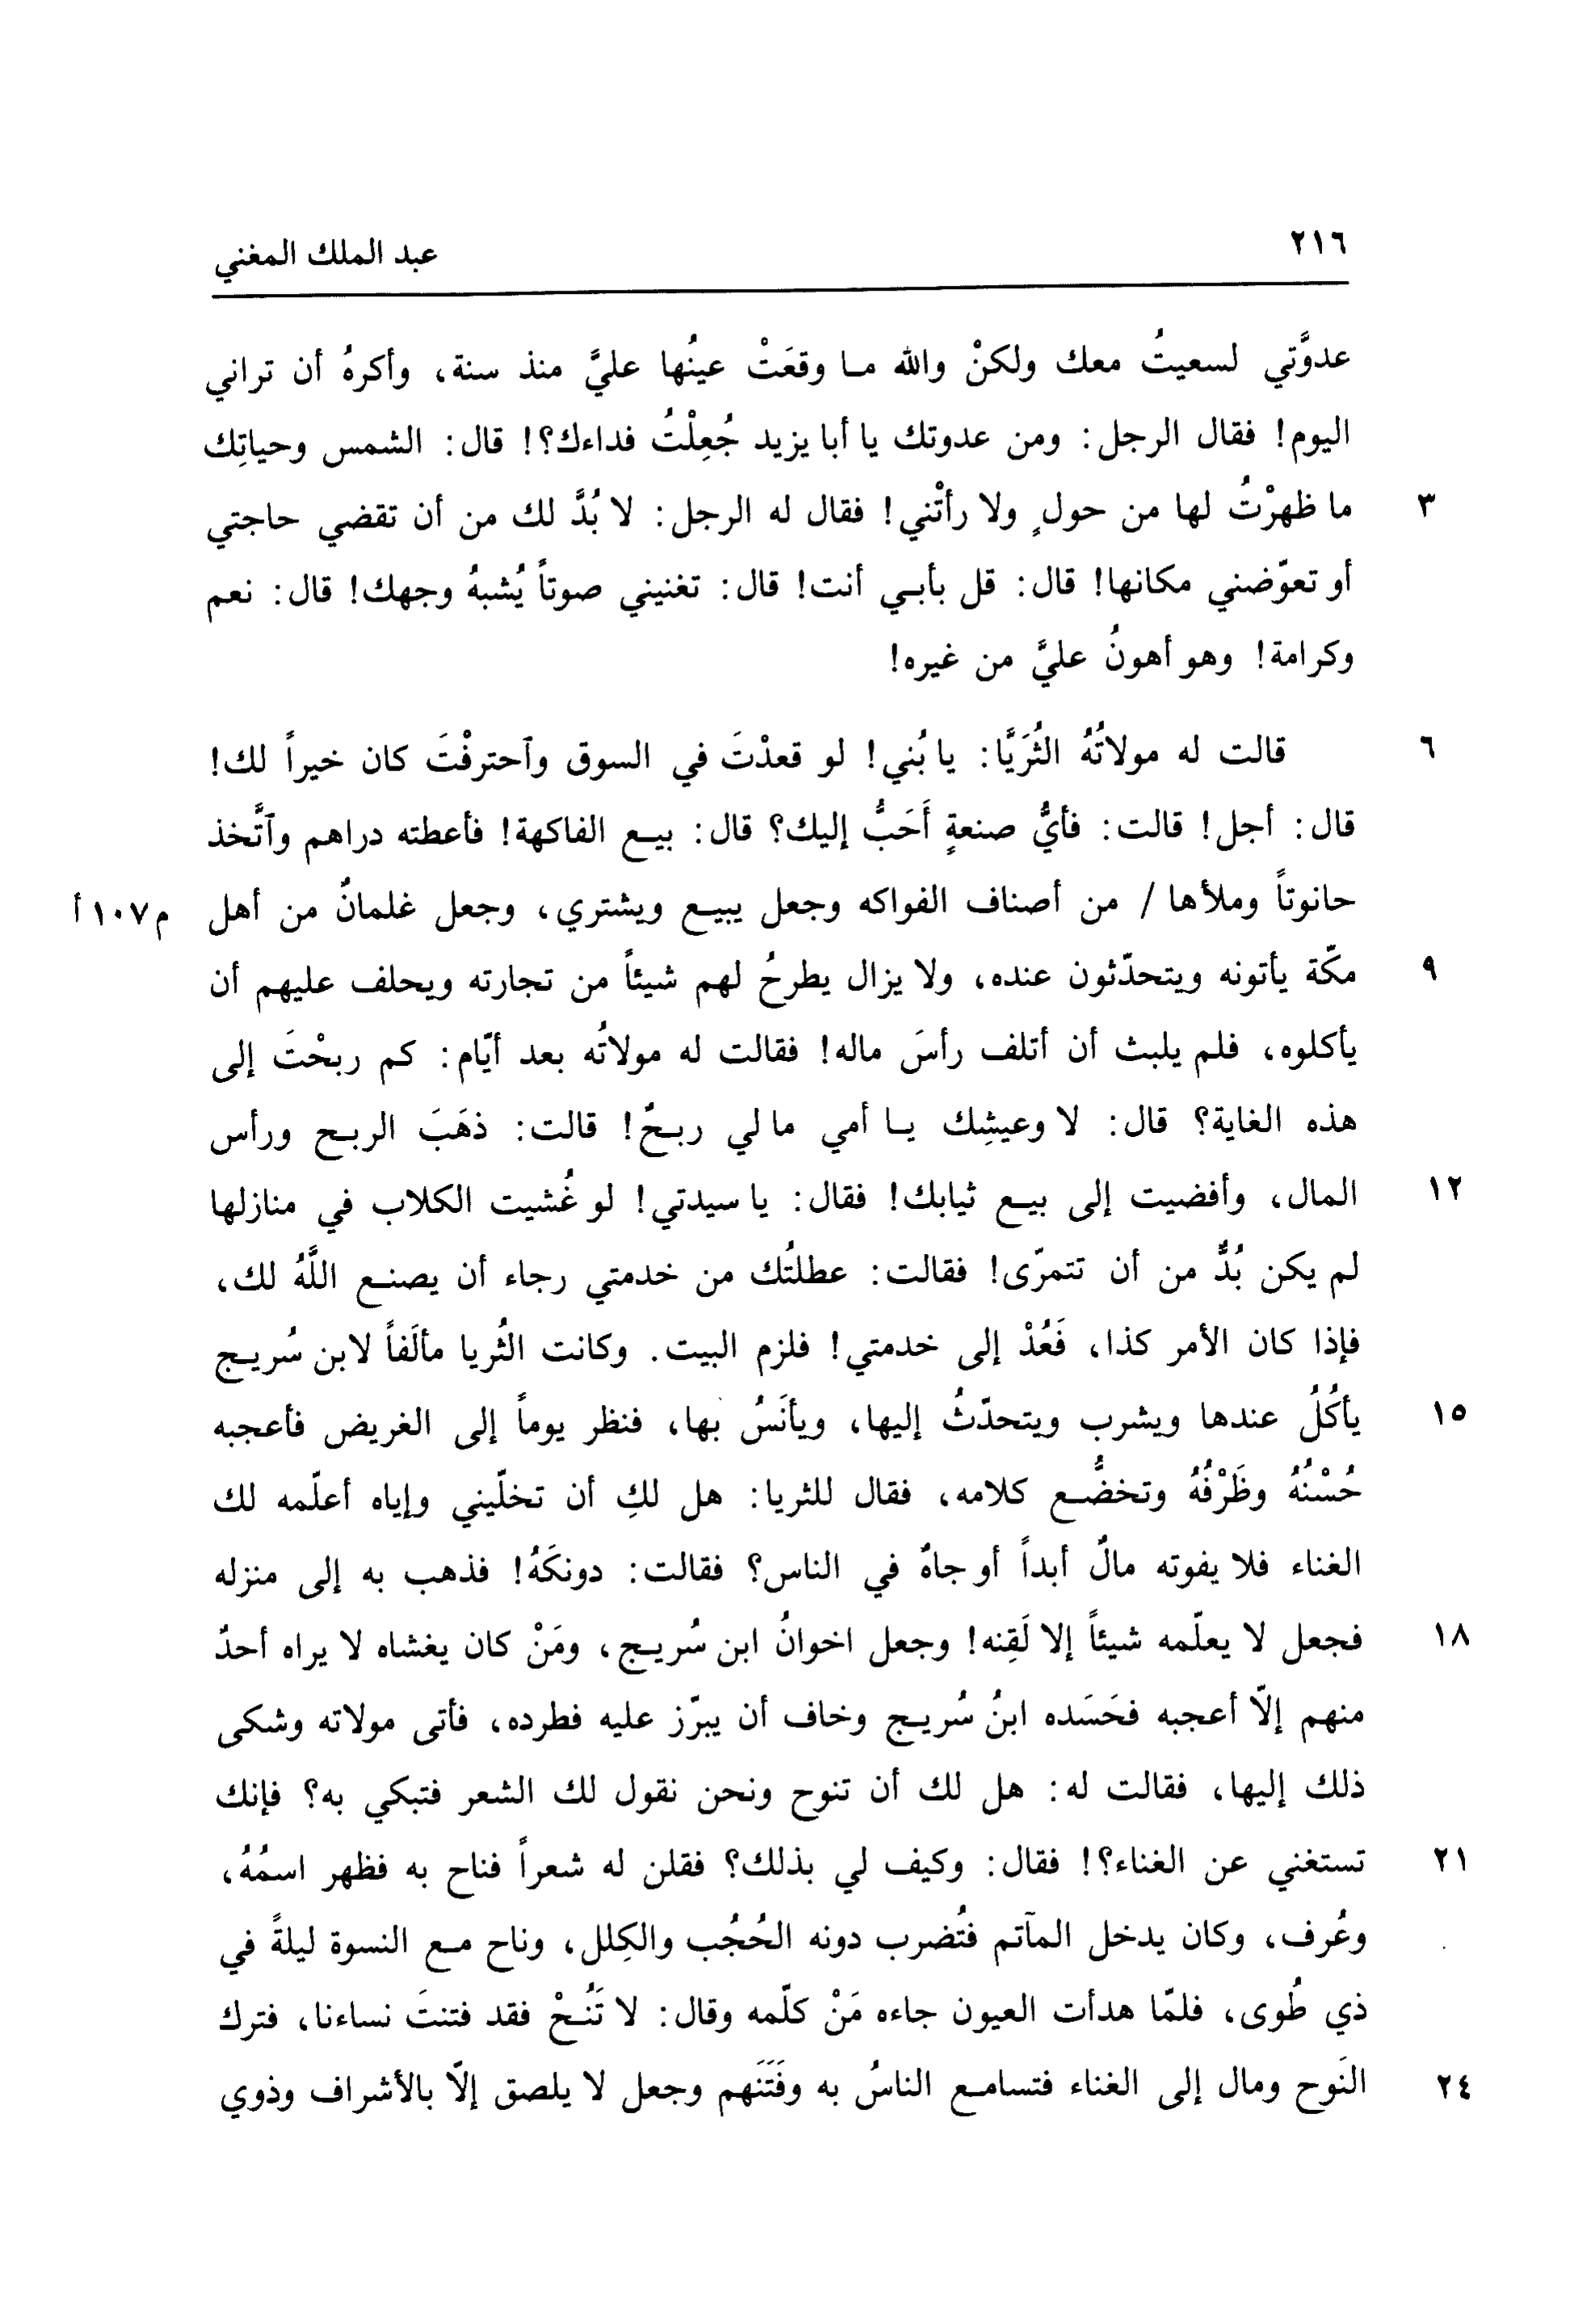 ٢١٦ عبد الملك المغني
عدوَّتي لسعيتُ معك ولكنْ والله ما وقعَتْ عينُها عليَّ منذ سنة، وأكرهُ أن تراني
اليوم! فقال الرجل: ومن عدوتك يا أبا يزيد جُعِلْتُ فداءك؟! قال: الشمس وحياتِك
٣ ما ظهرْتُ لها من حولٍ ولا رأتْني! فقال له الرجل: لا بُدَّ لك من أن تقضي حاجتي
أو تعوّضني مكانها! قال: قل بأبي أنت! قال: تغنيني صوتاً يُشبهُ وجهك! قال: نعم
وكرامة! وهو أهونُ عليَّ من غيره!
٦ قالت له مولاتُهُ الثُرَيَّا: يا بُني! لو قعدْتَ في السوق وٱحترفْتَ كان خيراً لك!
قال: أجل! قالت: فأيُّ صنعةٍ أَحَبُّ إليك؟ قال: بيع الفاكهة! فأعطته دراهم وٱتَّخذ
حانوتاً وملأها / من أصناف الفواكه وجعل يبيع ويشتري، وجعل غلمانٌ من أهل م١٠٧ أ
٩ مكّة يأتونه ويتحدّثون عنده، ولا يزال يطرحُ لهم شيئاً من تجارته ويحلف عليهم أن
يأكلوه، فلم يلبث أن أتلف رأسَ ماله! فقالت له مولاتُه بعد أيّام: كم ربحْتَ إلى
هذه الغاية؟ قال: لا وعيشِك يا أمي ما لي ربحٌ! قالت: ذهَبَ الربح ورأس
١٢ المال، وأفضيت إلى بيع ثيابك! فقال: يا سيدتي! لو غُشيت الكلاب في منازلها
لم يكن بُدٌّ من أن تتمرّى! فقالت: عطلتُك من خدمتي رجاء أن يصنع اللَّهُ لك،
فإذا كان الأمر كذا، فَعُدْ إلى خدمتي! فلزم البيت. وكانت الثُريا مألَفاً لابن سُريج
١٥ يأكُلُ عندها ويشرب ويتحدّثُ إليها، ويأنَسُ بها، فنظر يوماً إلى الغريض فأعجبه
حُسْنُهُ وظَرْفُهُ وتخضُّع كلامه، فقال للثريا: هل لكِ أن تخلّيني وإياه أعلّمه لك
الغناء فلا يفوته مالٌ أبداً أو جاهٌ في الناس؟ فقالت: دونكَهُ! فذهب به إلى منزله
١٨ فجعل لا يعلّمه شيئاً إلا لَقِنه! وجعل اخوانُ ابن سُريج، ومَنْ كان يغشاه لا يراه أحدٌ
منهم إلّا أعجبه فحَسَده ابنُ سُريج وخاف أن يبرّز عليه فطرده، فأتى مولاته وشكى
ذلك إليها، فقالت له: هل لك أن تنوح ونحن نقول لك الشعر فتبكي به؟ فإنك
٢١ تستغني عن الغناء؟! فقال: وكيف لي بذلك؟ فقلن له شعراً فناح به فظهر اسمُهُ،
وعُرف، وكان يدخل المآتم فتُضرب دونه الحُجُب والكِلل، وناح مع النسوة ليلةً في
ذي طُوى، فلمّا هدأت العيون جاءه مَنْ كلّمه وقال: لا تَنُحْ فقد فتنتَ نساءنا، فترك
٢٤ النَوح ومال إلى الغناء فتسامع الناسُ به وفَتَنَهم وجعل لا يلصق إلّا بالأشراف وذوي